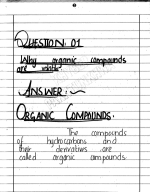 QUESTION: 01
Why organic compounds
are volatile?
ANSWER:~
ORGANIC COMPOUNDS:
The compounds
of hydrocarbons and
their derivatives are
called organic compounds.